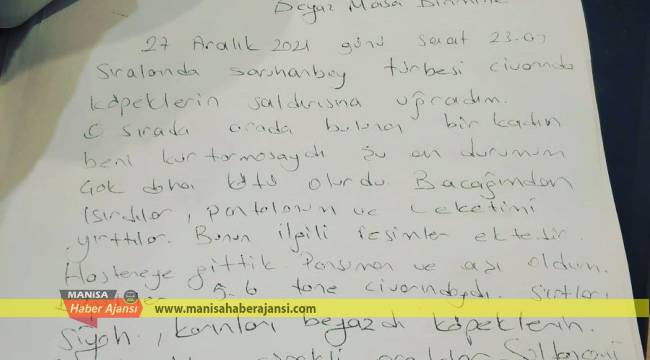 Beyaz Masa Birimine
27 Aralık 2021 günü saat 23.00
Sıralarında saruhanbey türbesi civarında
köpeklerin saldırısına uğradım.
O sırada orada bulunan bir kadın
beni kurtarmasaydı şu an durumum
çok daha kötü olurdu. Bacağımdan
ısırdılar, pantolonum ve ceketimi
yırttılar. Bunun ilgili resimler ektedir.
Hastaneye gittik. Pansuman ve aşı oldum.
5-6 tane civarındaydı. Sırtları
Siyah, karınları beyazdı köpeklerin.
MANİSA
Haber Ajansı
www.manisahaberajansi.com